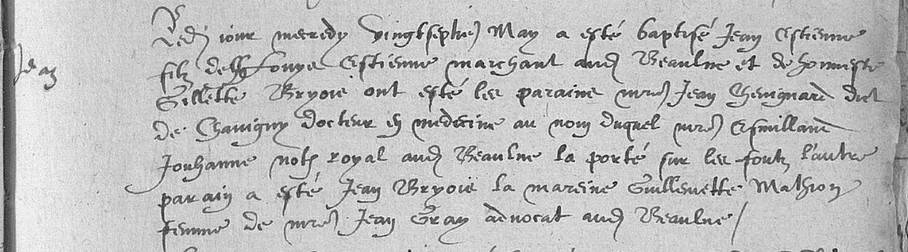 Jean
Led jour mercredy vingtseptie May a esté baptisé Jean Estienne
filz de Estienne marchant aud Beaulne et de honneste
Gillette Bryois ont esté les parains mre Jean Chevignard dict
de Chavigny docteur en medecine au nom duquel mre
Jouhanne not royal aud Beaulne la porté sur les fontz l'autre
parain a esté Jean Bryois la mareine Guillemette Mathion
femme de mre Jean Gray advocat aud Beaulne /